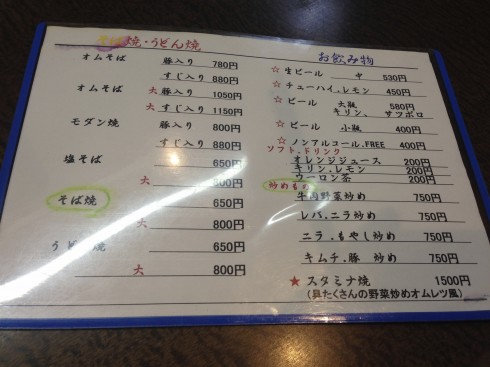 そば焼・うどん焼
オムそば 豚入り 780円
すじ入り 880円
オムそば 大 豚入り 1050円
大 すじ入り 1150円
モダン焼 豚入り 800円
すじ入り 880円
塩そば 650円
大 800円
そば焼 650円
大 800円
うどん焼 650円
大 800円
お飲み物
☆ 生ビール 中 530円
☆ チューハイ.レモン 450円
☆ ビール 大瓶 580円
キリン、サッポロ
☆ ビール 小瓶 400円
☆ ノンアルコール.FREE 400円
ソフト.ドリンク
オレンジジュース 200円
キリン.レモン 200円
ウーロン茶 200円
炒めもの
牛肉野菜炒め 750円
レバ.ニラ炒め 750円
ニラ.もやし炒め 750円
キムチ.豚 炒め 750円
★ スタミナ焼 1500円
(具たくさんの野菜炒めオムレツ風)